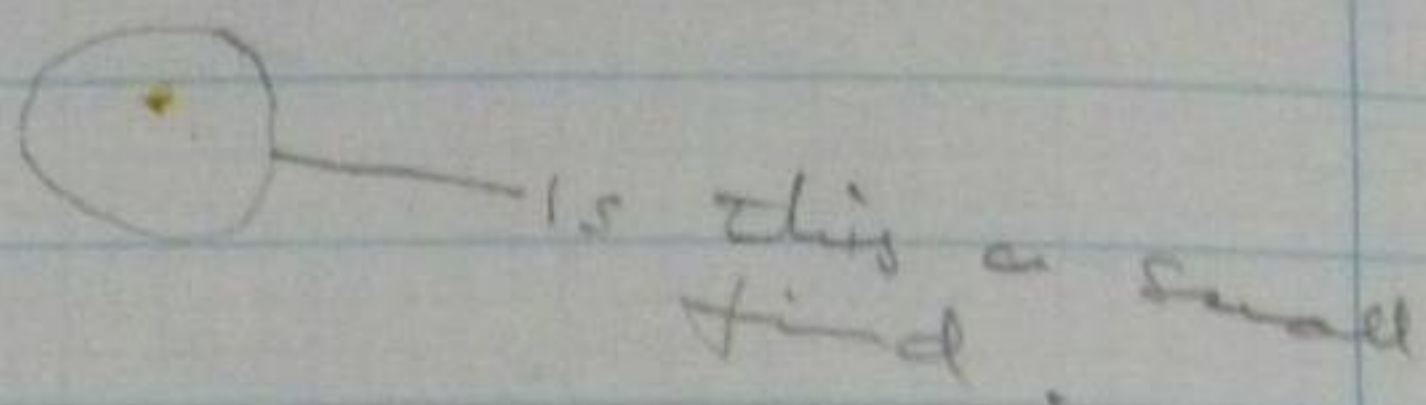 Is this a small
find